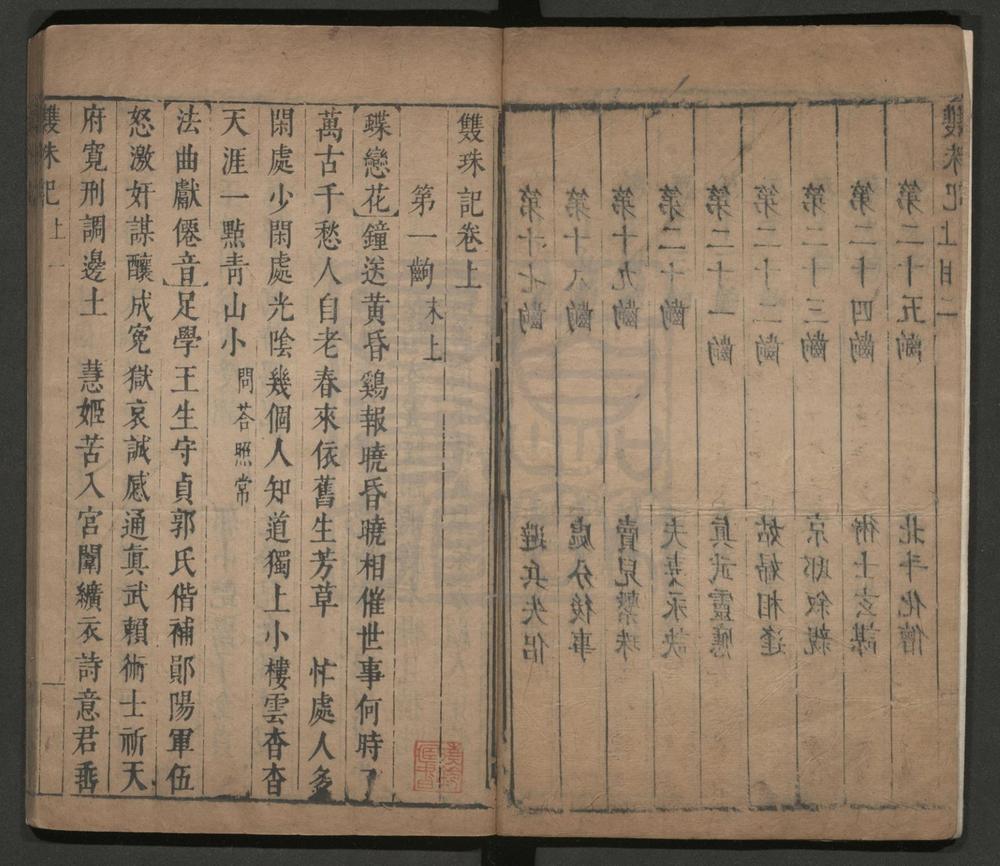 雙珠記 上目 二
第二十五齣 北斗化僧
第二十四齣 術士玄謀
第二十三齣 京邸叙親
第二十二齣 姑婦相逢
第二十一齣 真武靈應
第二十齣 夫妻永訣
第十九齣 賣兒繫珠
第十八齣 處分後事
第十七齣 避兵失侶
雙珠記卷上
第一齣 末上
【蝶戀花】鐘送黃昏鷄報曉昏曉相催世事何時了
萬古千愁人自老春來依舊生芳草 忙處人多
閑處少閑處光陰幾個人知道獨上小樓雲杳杳
天涯一㸃青山小 問荅照常
【法曲獻僊音】足學王生守貞郭氏偕補鄖陽軍伍
怒激奸謀釀成寃獄哀誠感通真武賴術士祈天
府寬刑調邊土 慧姬苦入宮闈纊衣詩意君垂
雙珠記 上 一